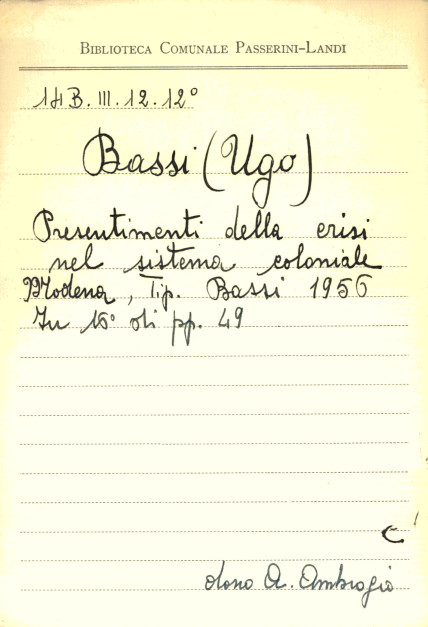 BIBLIOTECA COMUNALE PASSERINI-LANDI
14B.III.12.12°
Bassi (Ugo)
Presentimenti della crisi
nel sistema coloniale
Modena, Tip. Bassi 1956
In 16° di pp. 49
C
dono A. Ambrogio